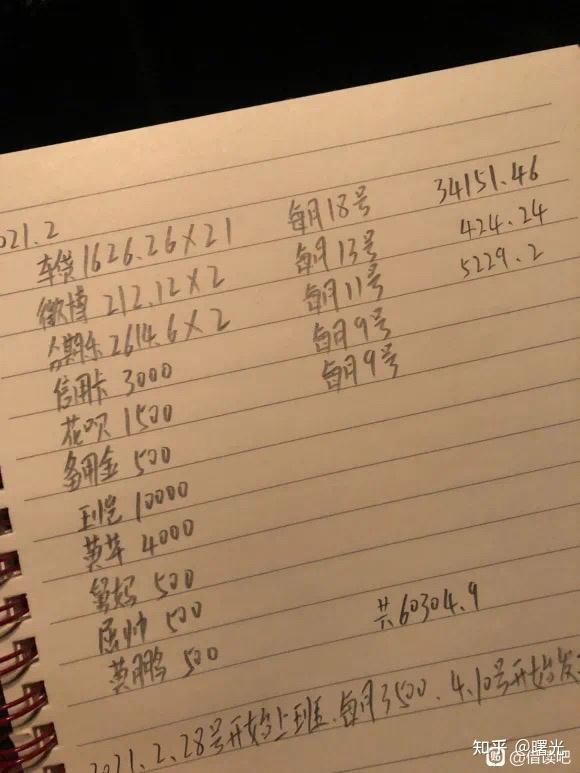 2021.2
车贷 1626.26×21 每月18号 34151.46
微博 212.12×2 每月13号 424.24
分期乐 2614.6×2 每月11号 5229.2
信用卡 3000 每月9号
花呗 1500 每月9号
备用金 500
10000
4000
500
500
500
共60304.9
2021.2.28号开始上班、每月3500、4.10号开始发
知乎 @曙光
贴 @借读吧